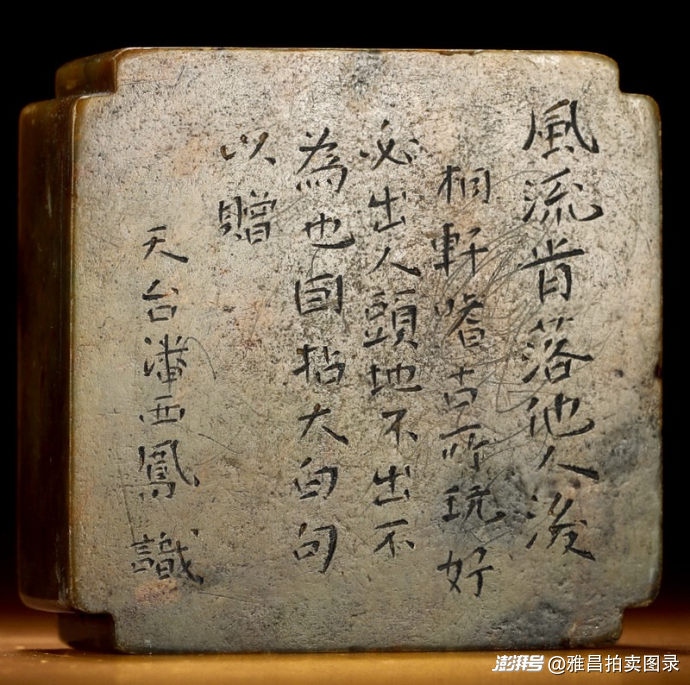 風流肯落他人後
桐軒嗜古所玩好
必出人頭地不出不
為也因拈太白句
以贈
天台潘西鳳 識
澎湃号@雅昌拍卖图录